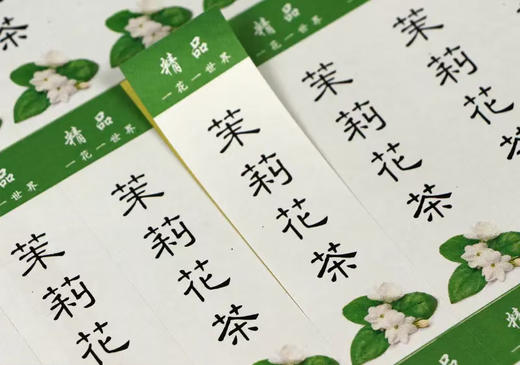 茶
精品
一花一世界
茉莉花茶
精品
一花一世界
茉莉花茶
精品
一花一世界
茉莉花茶
品
一世界
茉莉花
茉莉花
精品